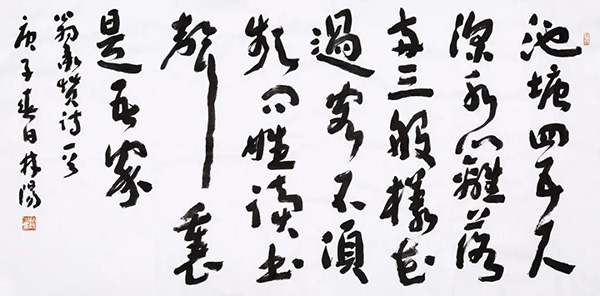 池塘四五尺
深水離落
两三般樣花
過客不須
頻問姓讀書
聲裏
是吾家
翁承贊詩一首
庚子春日